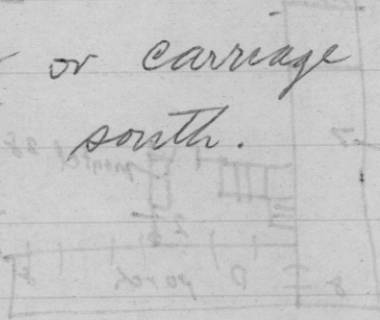 or carriage
south.